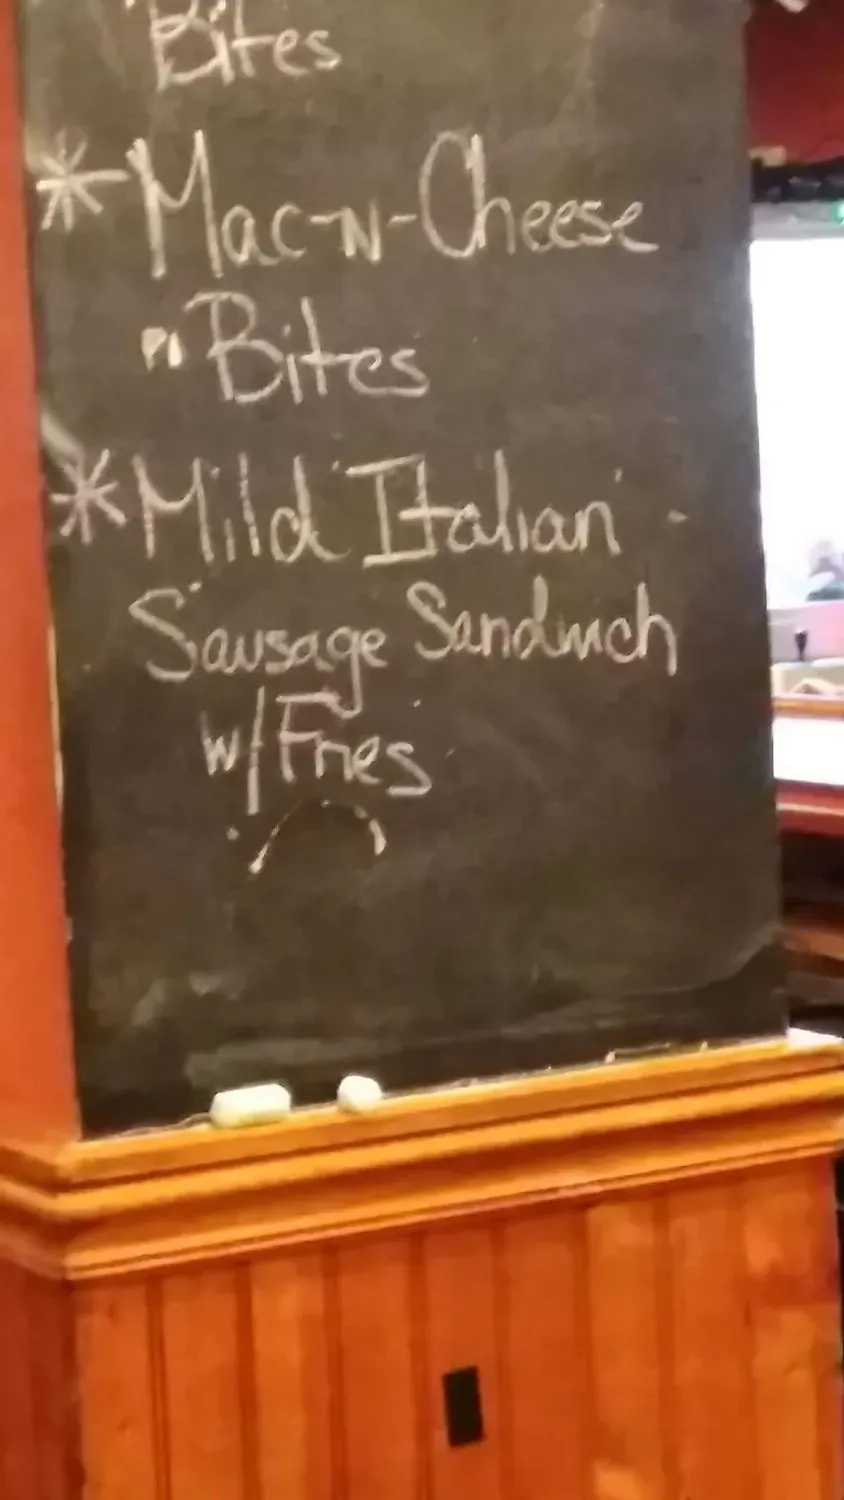 Bites
* Mac-N-Cheese
Bites
* Mild Italian
Sausage Sandwich
w/Fries